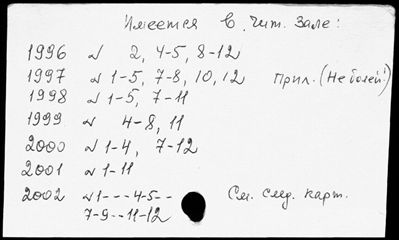 Имеется в чит. зале:
1996 № 2, 4-5, 8-12
1997 № 1-5, 7-8, 10, 12 Прил. (Не болей!)
1998 № 1-5, 7-11
1999 № 4-8, 11
2000 № 1-4, 7-12
2001 № 1-11
2002 № 1---4-5-- См. след. карт.
7-9--11-12